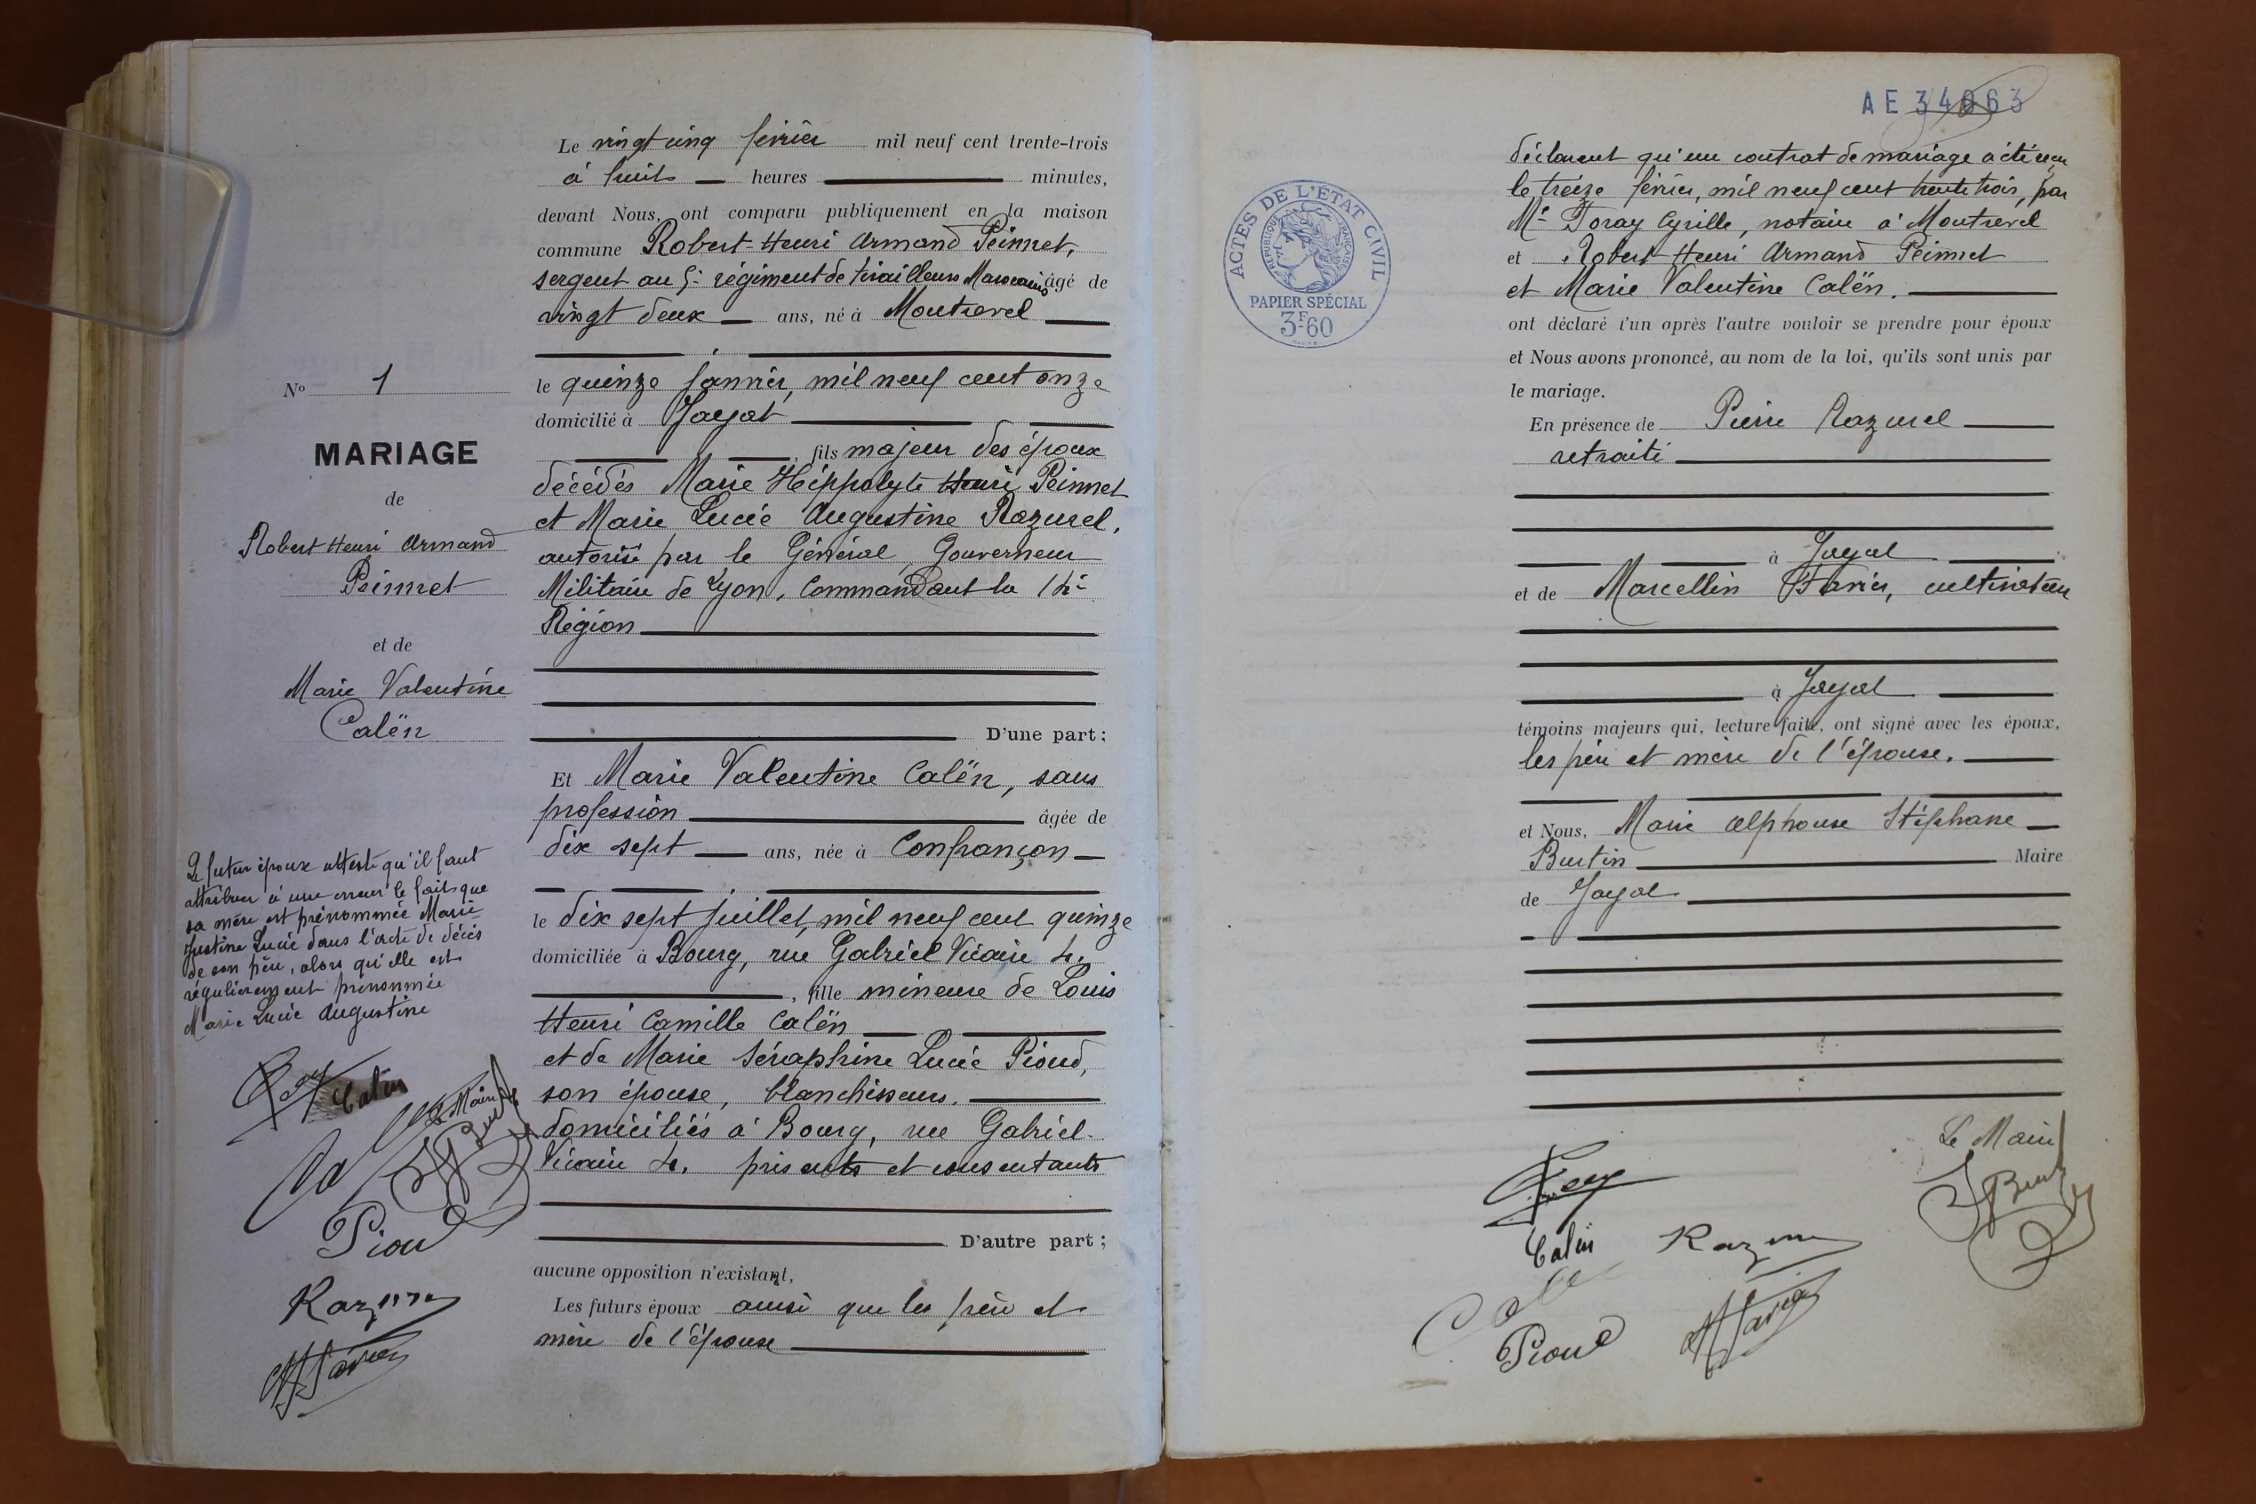 Le vingt cinq février mil neuf cent trente-trois
à huit heures minutes,
devant Nous, ont comparu publiquement en la maison
commune Robert-Henri Armand Peinnet,
sergent au 5e régiment de tirailleurs Marocains âgé de
vingt deux ans, né à Montrevel
le quinze Janvier, mil neuf cent onze
domicilié à Jayat
, fils majeur des époux
décédés Marie Hippolyte Henri Peinnet
et Marie Lucie Augustine Razurel,
autorisé par le Général, Gouverneur
Militaire de Lyon, Commandant la 14e
Région
D'une part;
Et Marie Valentine Calën, sans
profession âgée de
dix sept ans, née à Confrançon
le dix sept Juillet, mil neuf cent quinze
domiciliée à Bourg, rue Gabriel Vicaire 4,
, fille mineure de Louis
Henri Camille Calën
et de Marie Séraphine Lucie Pioud,
son épouse, blanchisseurs.
domiciliés à Bourg, rue Gabriel-
Vicaire 4, présents et consentants
D'autre part;
aucune opposition n'existant,
Les futurs époux ainsi que les père et
mère de l'épouse
No 1
MARIAGE
de
Robert Henri Armand
Peinnet
et de
Marie Valentine
Calën
Le futur époux atteste qu'il faut
attribuer à une erreur le fait que
sa mère est prénommée Marie
Justine Lucie dans l'acte de décès
de son père, alors qu'elle est
régulièrement prénommée
Marie Lucie Augustine
Calën
Le Maire
Pioud
AE 34063
ACTES DE L'ÉTAT CIVIL
RÉPUBLIQUE FRANÇAISE
PAPIER SPÉCIAL
3F60
déclarent qu'un contrat de mariage a été reçu
le treize février, mil neuf cent trente trois, par
Me Foray Cyrille, notaire à Montrevel
et Robert Henri Armand Peinnet
et Marie Valentine Calën.
ont déclaré l'un après l'autre vouloir se prendre pour époux
et Nous avons prononcé, au nom de la loi, qu'ils sont unis par
le mariage.
En présence de Pierre Razurel
retraité
à Jayat
et de Marcellin Favier, cultivateur
à Jayat
témoins majeurs qui, lecture faite, ont signé avec les époux,
les père et mère de l'épouse.
et Nous, Marie Alphonse Stéphane
Burtin Maire
de Jayat
Le Maire
Calën
Pioud